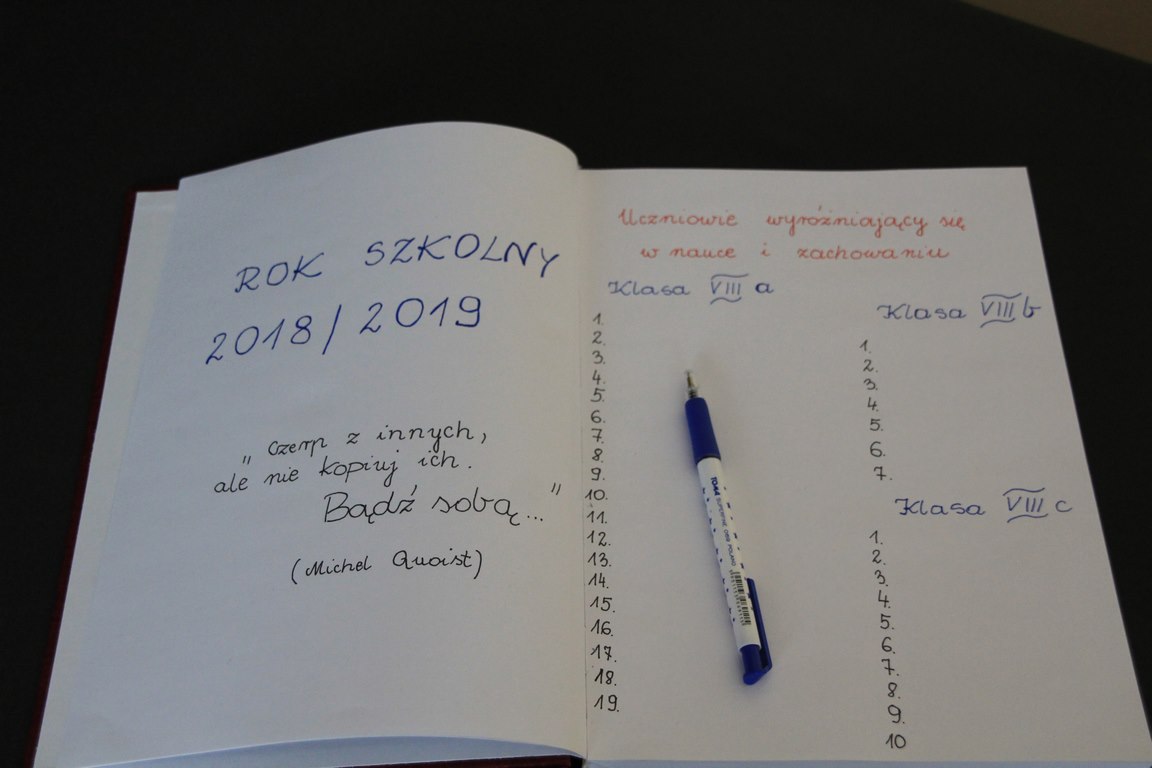 ROK SZKOLNY
2018/2019
„Czerp z innych,
ale nie kopiuj ich.
Bądź sobą..."
(Michel Quoist)
Uczniowie wyróżniający się
w nauce i zachowaniu
Klasa VIII a
1.
2.
3.
4.
5.
6.
7.
8.
9.
10.
11.
12.
13.
14.
15.
16.
17.
18.
19.
Klasa VIII b
1.
2.
3.
4.
5.
6.
7.
Klasa VIII c
1.
2.
3.
4.
5.
6.
7.
8.
9.
10
TOMA